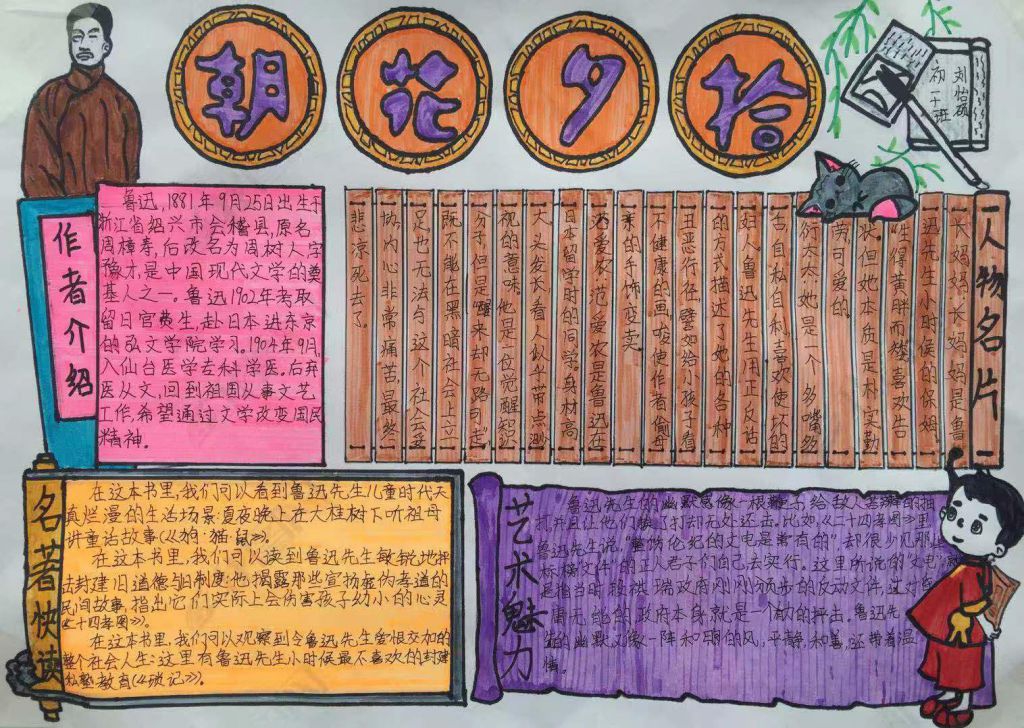 朝花夕拾
刘怡硕
初一十班
作者介绍
鲁迅,1881年9月25日出生于
浙江省绍兴市会稽县,原名
周樟寿,后改名为周树人,字
豫才,是中国现代文学的奠
基人之一。鲁迅1902年考取
留日官费生,赴日本进东京
的弘文学院学习。1904年9月,
入仙台医学专科学医。后弃
医从文,回到祖国从事文艺
工作,希望通过文学改变国民
精神。
人物名片
长妈妈:长妈妈是鲁
迅先生小时候的保姆。
"生得黄胖而矮"喜欢告
状。但她本质是朴实勤
劳,可爱的。
衍太太:她是一个多嘴多
舌自私自利,喜欢使坏的
妇人。鲁迅先生用正反话
的方式描述了她的各种
丑恶行径,譬如给小孩子看
不健康的画,唆使作者偷母
亲的手饰变卖。
范爱农:范爱农是鲁迅在
日本留学时的同学。身材高
大,头发长,看人似乎带点渺
视的意味。他是一位觉醒知识
分子,但是"醒来却无路可走"
既不能在黑暗社会上立
足,也无法与这个社会妥
协,内心非常痛苦,最终
悲凉死去了。
名著快读
在这本书里,我们可以看到鲁迅先生儿童时代天
真烂漫的生活场景:夏夜晚上在大桂树下听祖母
讲童话故事(《狗·猫·鼠》)。
在这本书里,我们可以读到鲁迅先生敏锐地抨
击封建旧道德与旧制度:他揭露那些宣扬虚伪孝道的
民间故事,指出它们实际上会伤害孩子幼小的心灵
二十四孝图》)。
在这本书里,我们可以观察到令鲁迅先生爱恨交加的
整个社会人生:这里有鲁迅先生小时候最不喜欢的封建
私塾教育(《琐记》)。
艺术魅力
鲁迅先生的幽默感像一根鞭子给敌人苦辣的抽
打,并且让他们挨了打却无处还击。比如,《二十四孝图》里,
鲁迅先生说,"整饬伦纪的文电是常有的"却很少见那些
标榜文件"的正人君子们自己去实行。这里所说的"文电"
是指当时段祺瑞政府刚刚颁步的反动文件,这对
庸无能的政府本身就是一个有力的抨击。鲁迅先
生的幽默又像一阵和明的风,平静,和善,还带着温
情。